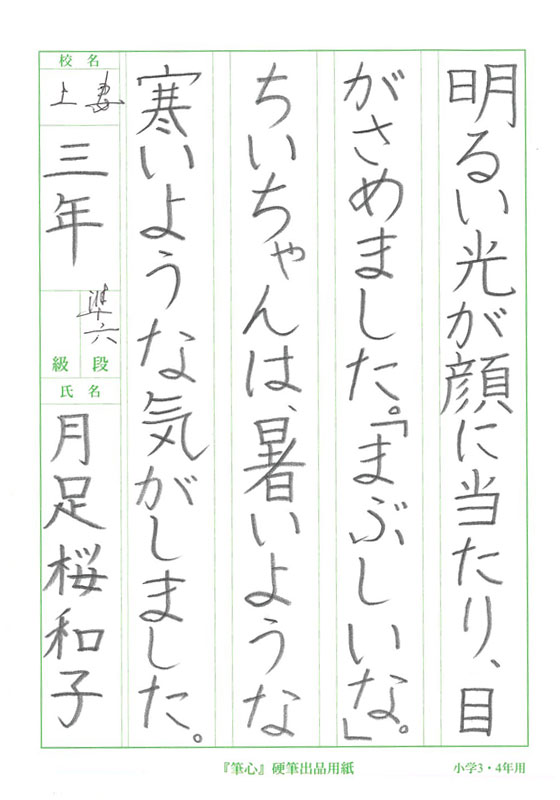 明るい光が顔に当たり、目
がさめました。「まぶしいな。」
ちいちゃんは、暑いような
寒いような気がしました。
校名
上妻
三年
準六
級段
氏名
月足桜和子
『筆心』硬筆出品用紙
小学3・4年用